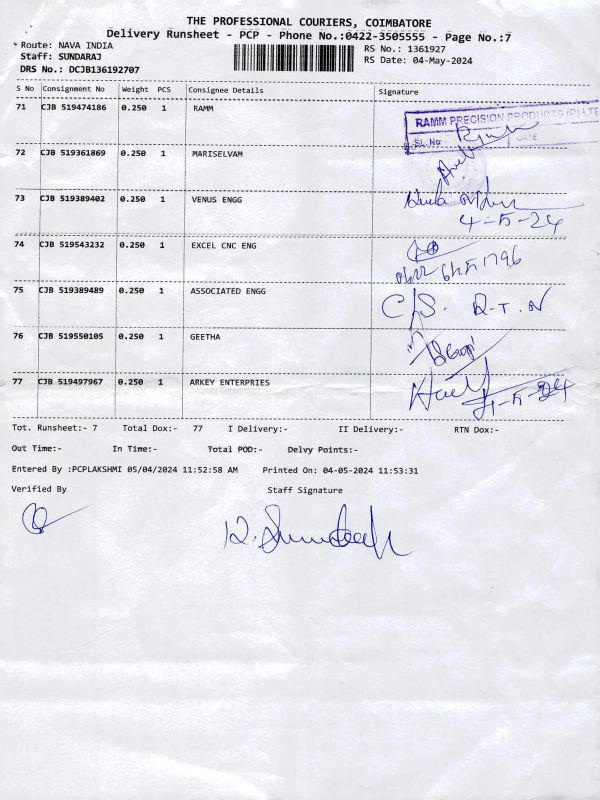 THE PROFESSIONAL COURIERS, COIMBATORE
Delivery Runsheet - PCP - Phone No.:0422-3505555 - Page No.:7
Route: NAVA INDIA
RS No.: 1361927
Staff: SUNDARAJ
RS Date: 04-May-2024
DRS No.: DCJB136192707
S No Consignment No Weight PCS Consignee Details Signature
71 CJB 519474186 0.250 1 RAMM
RAMM PRECISION PRODUCTS (P) LTE
SL.No DATE
72 CJB 519361869 0.250 1 MARISELVAM
73 CJB 519389402 0.250 1 VENUS ENGG
4-5-24
74 CJB 519543232 0.250 1 EXCEL CNC ENG
75 CJB 519389489 0.250 1 ASSOCIATED ENGG
C/S. R.T.N
76 CJB 519550105 1 GEETHA
0.250
77 CJB 519497967 0.250 1 ARKEY ENTERPRIES
Tot. Runsheet:- 7 Total Dox:- 77 I Delivery:- II Delivery:- RTN Dox:-
Out Time:- In Time:- Total POD:- Delvy Points:-
Entered By :PCPLAKSHMI 05/04/2024 11:52:58 AM Printed On: 04-05-2024 11:53:31
Verified By Staff Signature